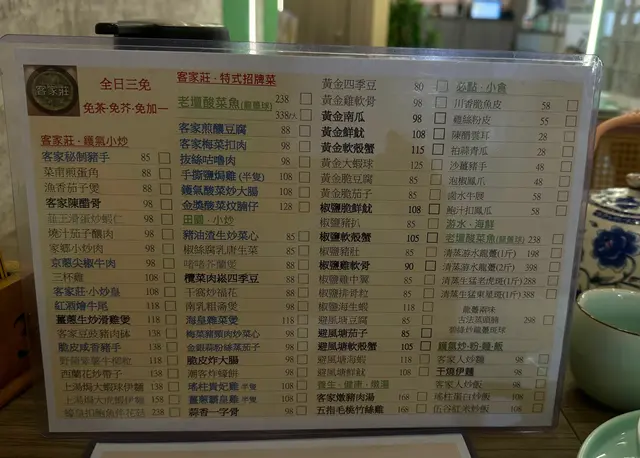 客家莊
全日三免
免茶·免芥·免加一
客家莊·鑊氣小炒
客家秘制豬手 85
菜甫煎蛋角 88
漁香茄子煲 88
客家陳醋骨 98
韮王滑蛋炒蝦仁 98
燒汁茄子釀肉 98
家鄉小炒肉 98
京蔥尖椒牛肉 98
三杯雞 108
客家莊小炒皇 108
紅酒燴牛尾 118
薑蔥生炒滑雞煲 118
客家豆豉豬肉砵
脆皮咸香豬手 138
138
西蘭花炒帶子 138
上湯焗大蝦球伊麵 138
上湯焗大虎蝦伊麵 158
228
客家莊·特式招牌菜
老壇酸菜魚(龍躉球) 238
338/大
客家煎釀豆腐 88
客家梅菜扣肉 98
拔絲咕嚕肉 98
手撕鹽焗雞 (半隻) 108
鑊氣酸菜炒大腸 108
金獎酸菜炆腩仔 128
田園·小炒
豬油渣生炒菜心 85
椒絲腐乳唐生菜 85
啫啫芥蘭煲 88
欖菜肉崧四季豆 88
干窩炒福花 88
南乳粗齋煲 98
海皇雜菜煲 98
梅菜豬頸肉炒菜心 98
金銀蒜粉絲蒸茄子 98
脆皮炸大腸 98
潮客炸蠔餅 98
瑤柱貴妃雞 半隻 108
薑蔥霸皇雞 半隻 108
蒜香一字骨 98
黃金四季豆 80
黃金雞軟骨 98
黃金南瓜 98
黃金鮮魷 108
黃金軟殼蟹 115
黃金大蝦球 125
黃金脆豆腐 85
黃金脆茄子 85
椒鹽脆鮮魷 108
椒鹽豬扒 85
椒鹽軟殼蟹 105
椒鹽豬肚 85
椒鹽雞軟骨 90
椒鹽雞中翼 85
椒鹽排骨粒 85
椒鹽海生蝦 118
避風塘豆腐 85
避風塘茄子 85
避風塘軟殼蟹 105
避風塘海蝦 118
避風塘豬肚 88
養生·健康·燉湯
客家燉豬肉湯 168
五指毛桃竹絲雞 168
必點·小食
川香脆魚皮 58
雞絲粉皮 55
陳醋雲耳 58
拍蒜青瓜 58
沙薑豬手 48
泡椒鳳爪 48
滷水牛𦟌 58
鮑汁扣鳳爪 58
游水·海鮮
老壇酸菜魚(龍躉球) 238
清蒸游水龍躉(1斤) 198
清蒸生猛老虎斑(1斤) 238
清蒸生猛東星斑(1斤) 388
龍躉兩味
古法蒸頭腩 298
鑊氣炒·粉·麵·飯
客家人炒麵 98
干燒伊麵 98
客家人炒飯 98
瑤柱蛋白炒飯 108
伍谷紅米炒飯 108